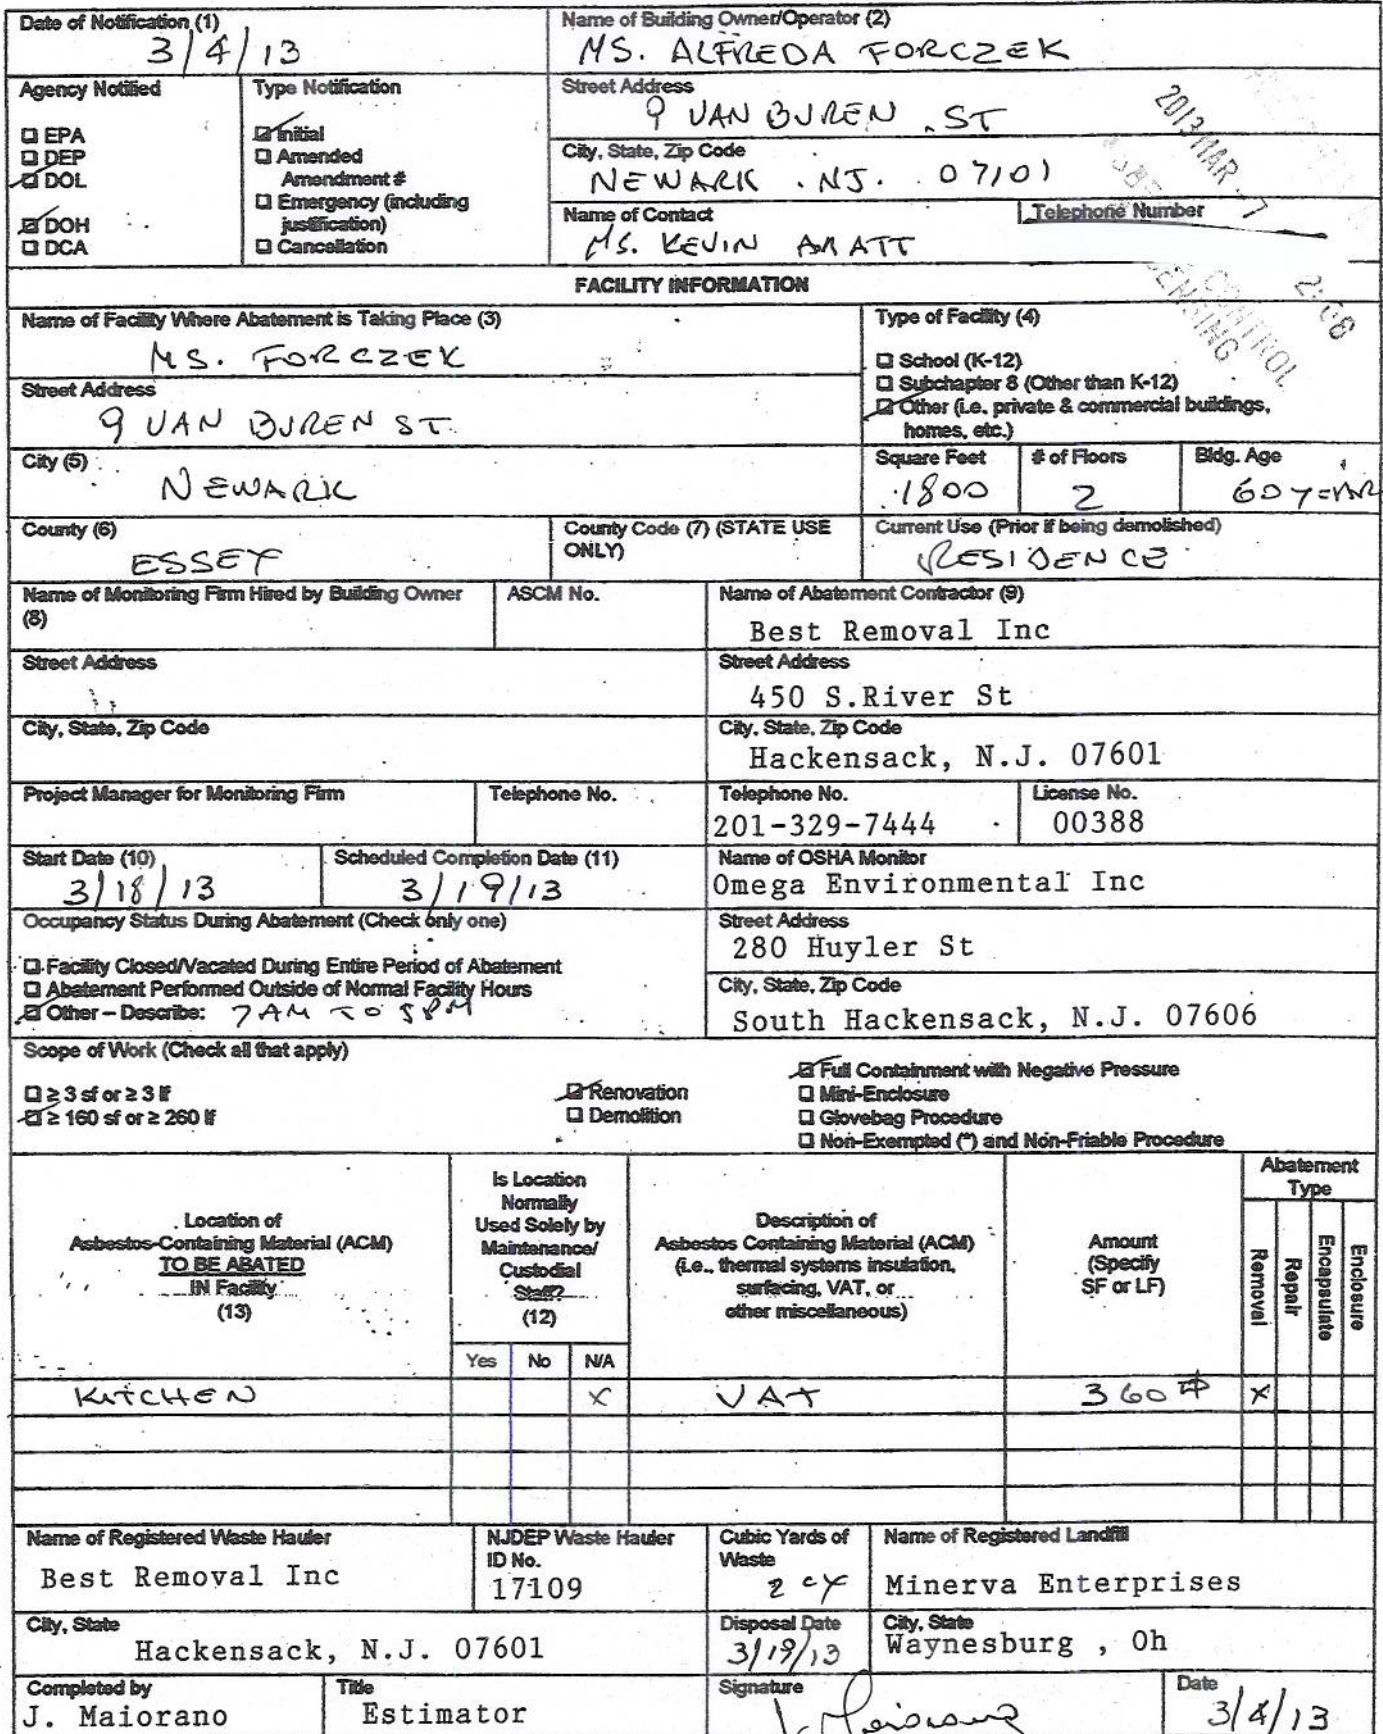 Date of Notification (1)
3/4/13
Name of Building Owner/Operator (2)
MS. ALFREDA FORCZEK
Agency Notified
EPA
DEP
DOL
DOH
DCA
Type Notification
Initial
Amended
Amendment #
Emergency (including
justification)
Cancellation
Street Address
9 VAN BUREN ST
City, State, Zip Code
NEWARK . NJ. 07101
Name of Contact
MS. KEVIN
Telephone Number
2013 MAR -7
2:08
CONTROL
FACILITY INFORMATION
Name of Facility Where Abatement is Taking Place (3)
MS. FORCZEK
Type of Facility (4)
School (K-12)
Subchapter 8 (Other than K-12)
Other (i.e. private & commercial buildings,
homes, etc.)
Street Address
9 VAN BUREN ST.
City (5)
NEWARK
Square Feet
1800
# of Floors
2
Bldg. Age
60 YEAR
County (6)
ESSEX
County Code (7) (STATE USE
ONLY)
Current Use (Prior if being demolished)
RESIDENCE
Name of Monitoring Firm Hired by Building Owner
(8)
ASCM No.
Name of Abatement Contractor (9)
Best Removal Inc
Street Address
Street Address
450 S.River St
City, State, Zip Code
City, State, Zip Code
Hackensack, N.J. 07601
Project Manager for Monitoring Firm
Telephone No.
Telephone No.
201-329-7444
License No.
00388
Start Date (10)
3/18/13
Scheduled Completion Date (11)
3/19/13
Name of OSHA Monitor
Omega Environmental Inc
Occupancy Status During Abatement (Check only one)
Facility Closed/Vacated During Entire Period of Abatement
Abatement Performed Outside of Normal Facility Hours
Other – Describe: 7AM TO 5PM
Street Address
280 Huyler St
City, State, Zip Code
South Hackensack, N.J. 07606
Scope of Work (Check all that apply)
≥ 3 sf or ≥ 3 lf
≥ 160 sf or ≥ 260 lf
Renovation
Demolition
Full Containment with Negative Pressure
Mini-Enclosure
Glovebag Procedure
Non-Exempted (*) and Non-Friable Procedure
Location of
Asbestos-Containing Material (ACM)
TO BE ABATED
IN Facility
(13)
Is Location
Normally
Used Solely by
Maintenance/
Custodial
Staff?
(12)
Yes No N/A
Description of
Asbestos Containing Material (ACM)
(i.e., thermal systems insulation,
surfacing, VAT, or
other miscellaneous)
Amount
(Specify
SF or LF)
Abatement
Type
Removal
Repair
Encapsulate
Enclosure
KITCHEN X VAT 360 X
Name of Registered Waste Hauler
Best Removal Inc
NJDEP Waste Hauler
ID No.
17109
Cubic Yards of
Waste
2 CY
Name of Registered Landfill
Minerva Enterprises
City, State
Hackensack, N.J. 07601
Disposal Date
3/19/13
City, State
Waynesburg , Oh
Completed by
J. Maiorano
Title
Estimator
Signature
J. Maiorano
Date
3/4/13